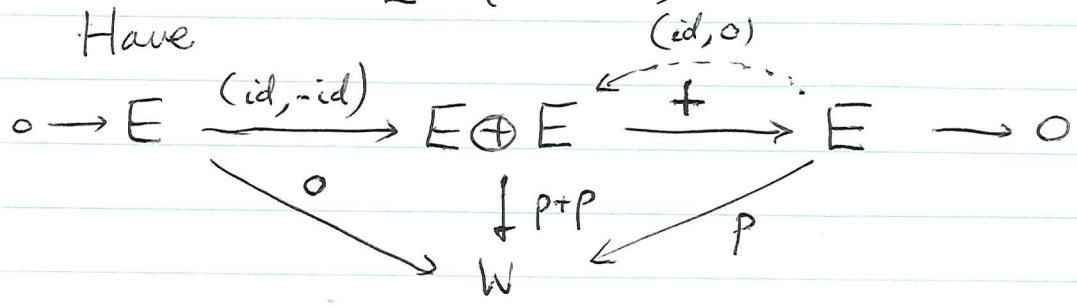 Have
(id, 0)
(id, -id) +
0 → E → E ⊕ E → E → 0
0 ↓ p+p p
W